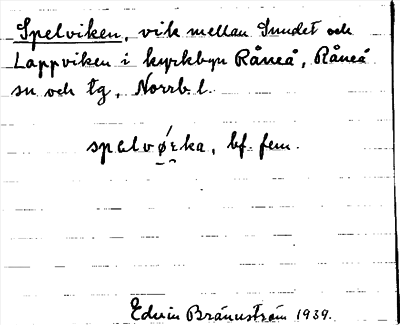 Spelviken, vik mellan Sundet och
Lappviken i kyrkbyn Råneå, Råneå
sn och tg, Norrb. l.
bf. fem.
Edvin Brännström 1939.